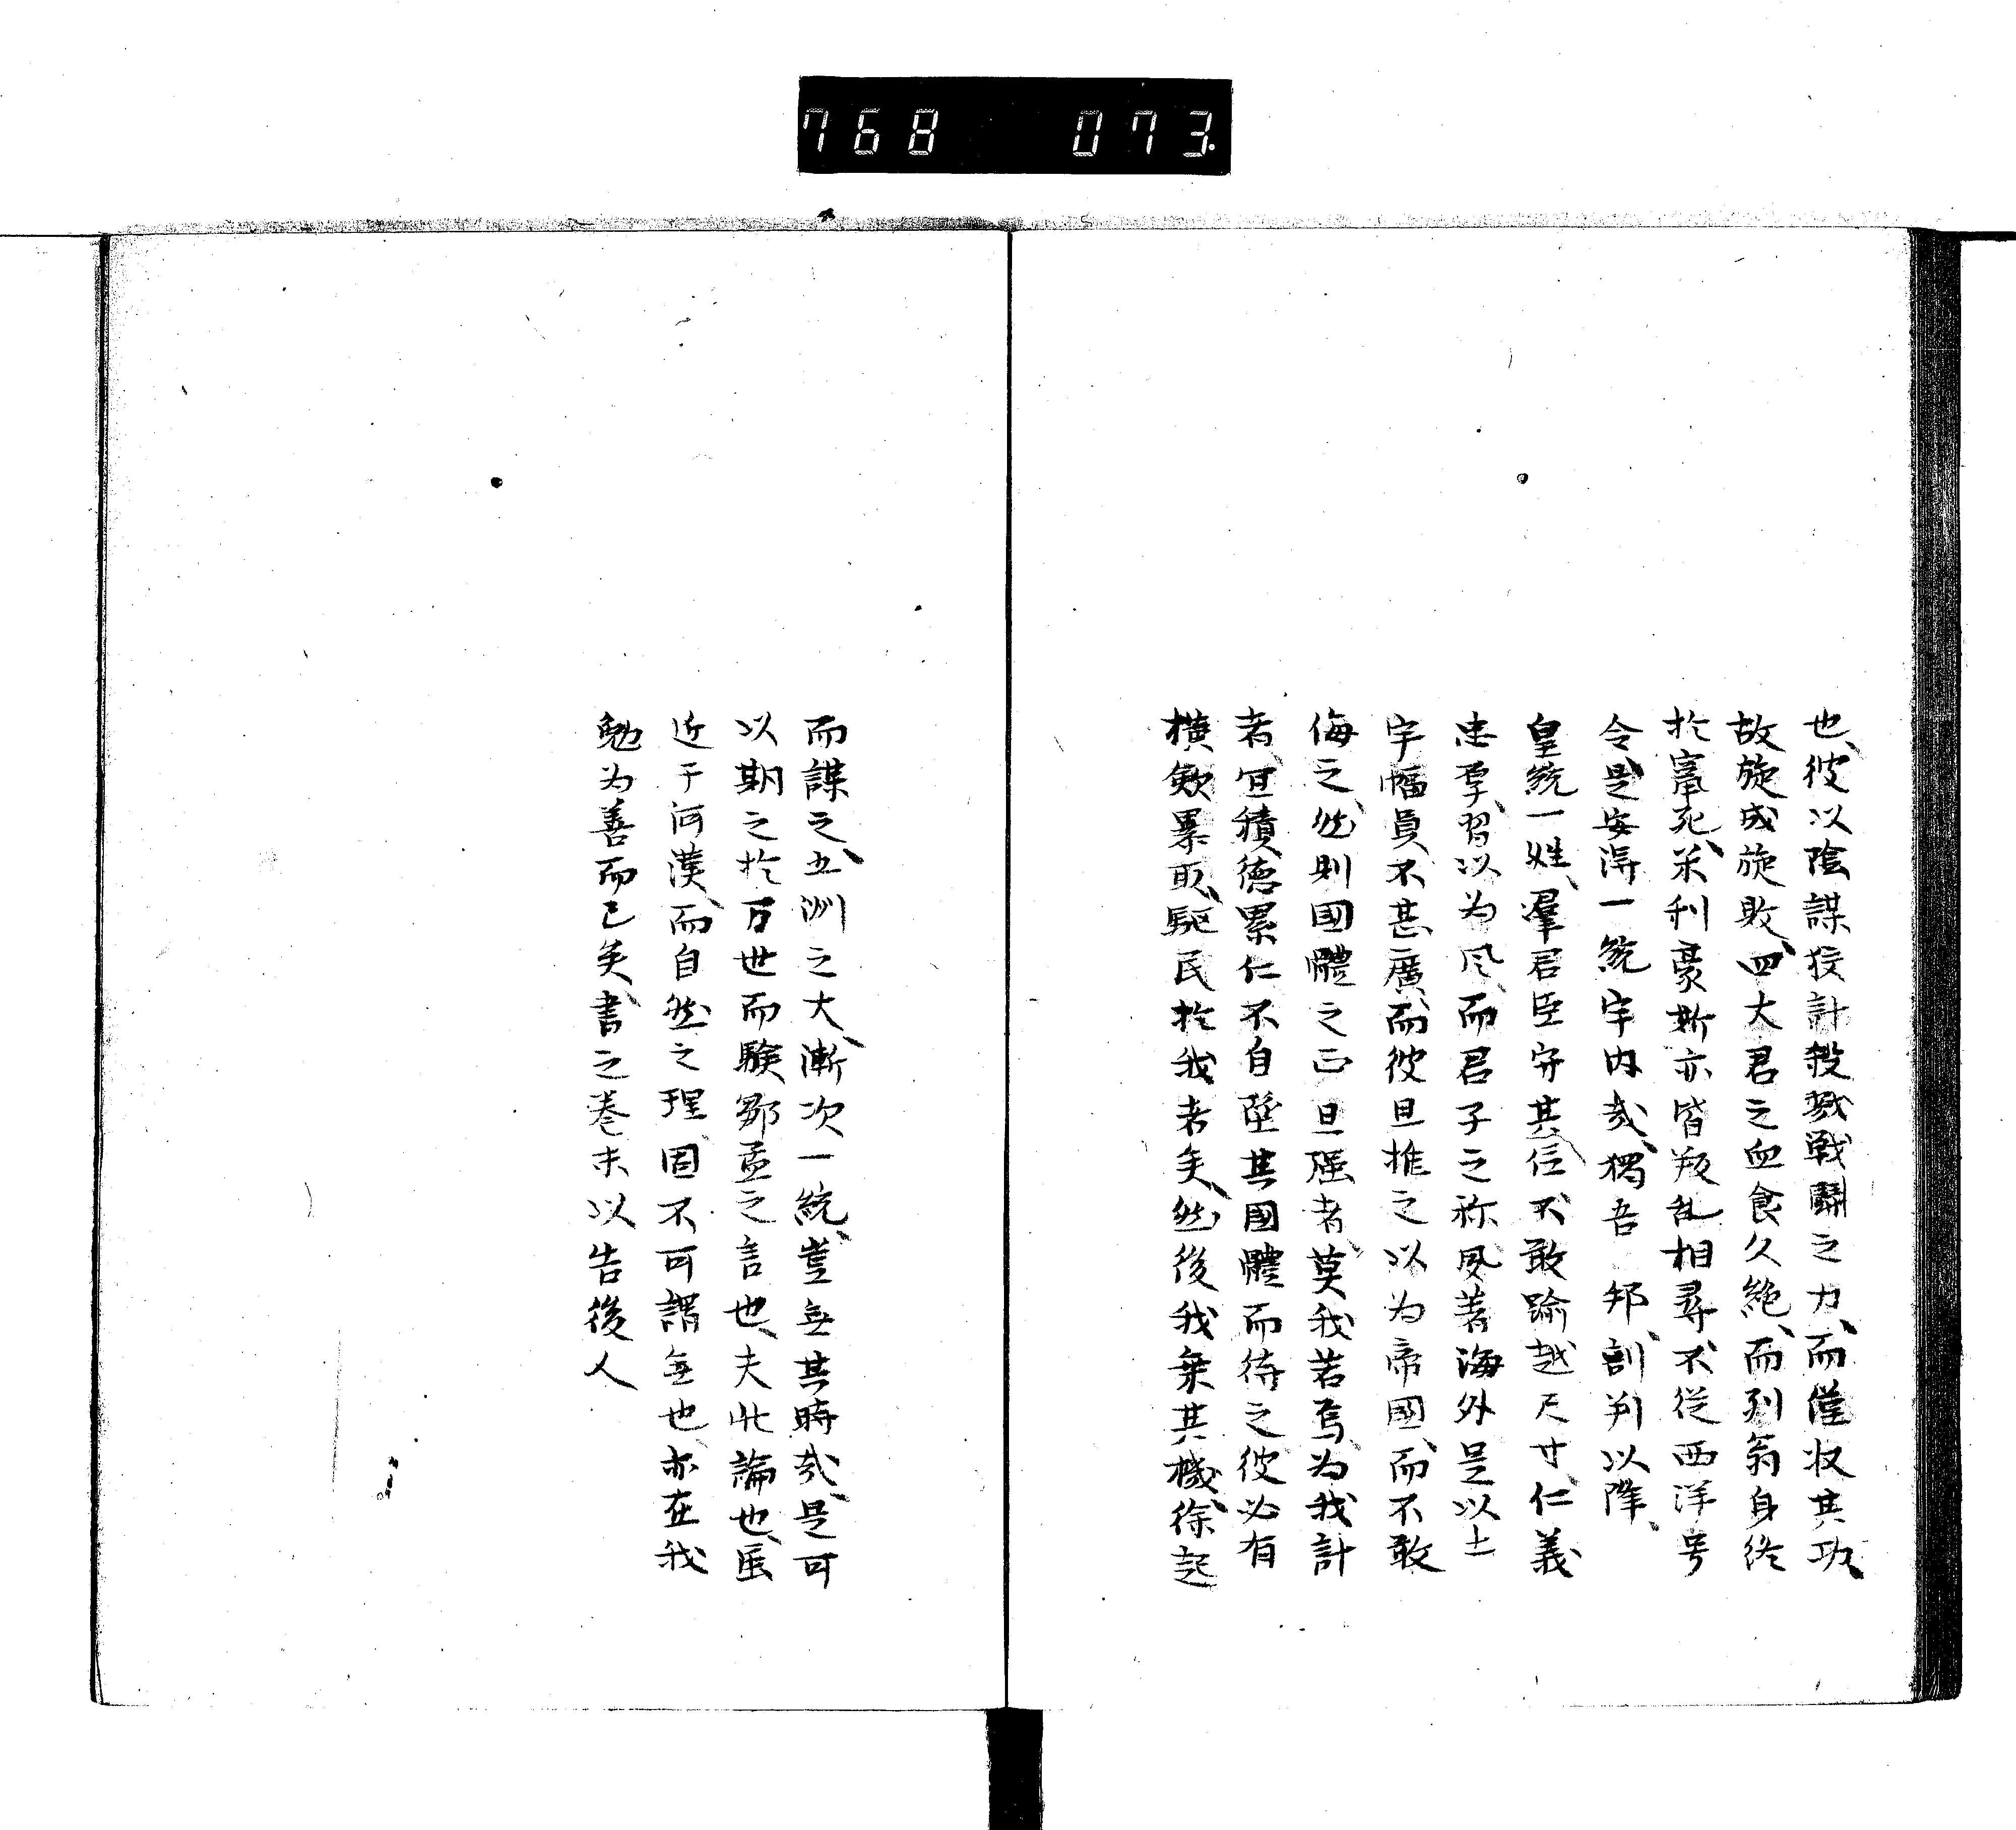 768 073
也、彼以陰謀狡計殺戮戦闘之力、而僅収其功、
故旋成旋敗、四大君之血食久絶、而列翁身終
於竄死、米利豪斯亦皆叛乱相尋、不従西洋号
令、是安得一統宇内哉、獨吾 邦、剖判以降、
皇統一姓、羣君臣守其位、不敢踰越尺寸、仁義
忠孝、習以為风、而君子之称夙著海外、是以土
宇幅員不甚廣、而彼且推之以为帝國、而不敢
侮之、然則國體之正且强者、莫我若焉、为我計
者、宜積徳累仁不自墜其國體而待之、彼必有
横斂暴取、駆民於我者矣、然後我乗其機、徐起
而謀之、五洲之大、漸次一統、豈無其時哉、是可
以期之於万世而験鄒孟之言也、夫此論也、虽
近于河漢、而自然之理、固不可謂無也、亦在我
勉为善而已矣、書之巻末以告後人